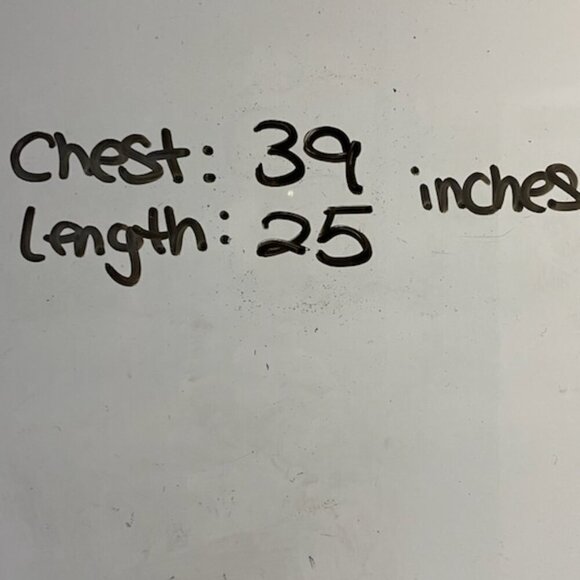 Chest: 39 inches
Length: 25